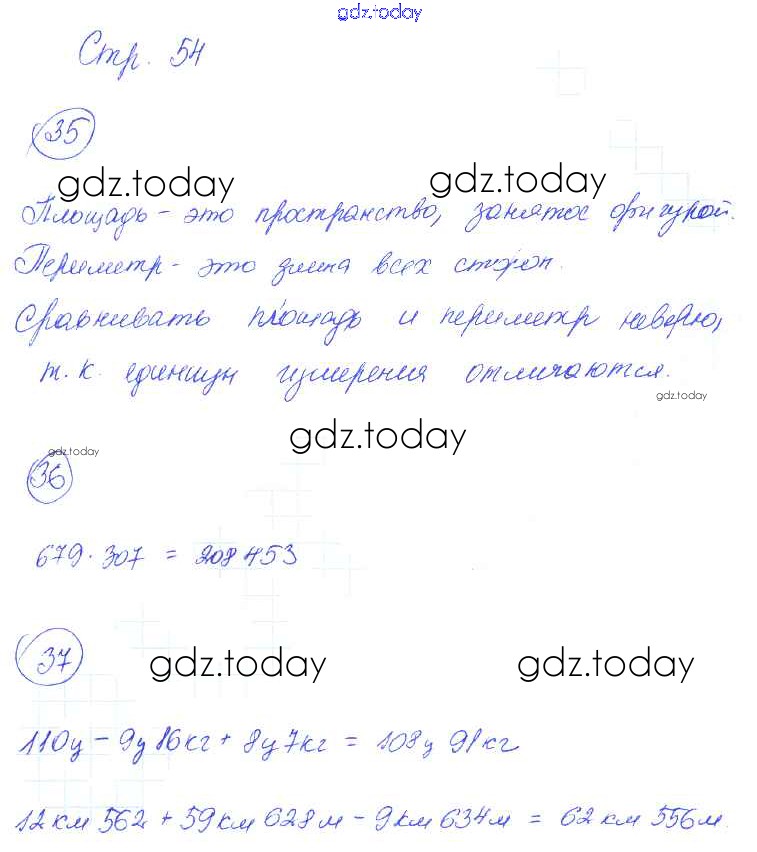 gdz.today
Стр. 54
35
gdz.today gdz.today
Площадь - это пространство, занятое фигурой.
Периметр - это длина всех сторон.
Сравнивать площадь и периметр неверно,
т. к. единицы измерения отличаются.
gdz.today
gdz.today
gdz.today
36
679 · 307 = 208 453
37
gdz.today gdz.today
110ц - 9ц 16кг + 8ц 7кг = 108ц 91кг
12км 562 + 59км 628м - 9км 634м = 62км 556м.